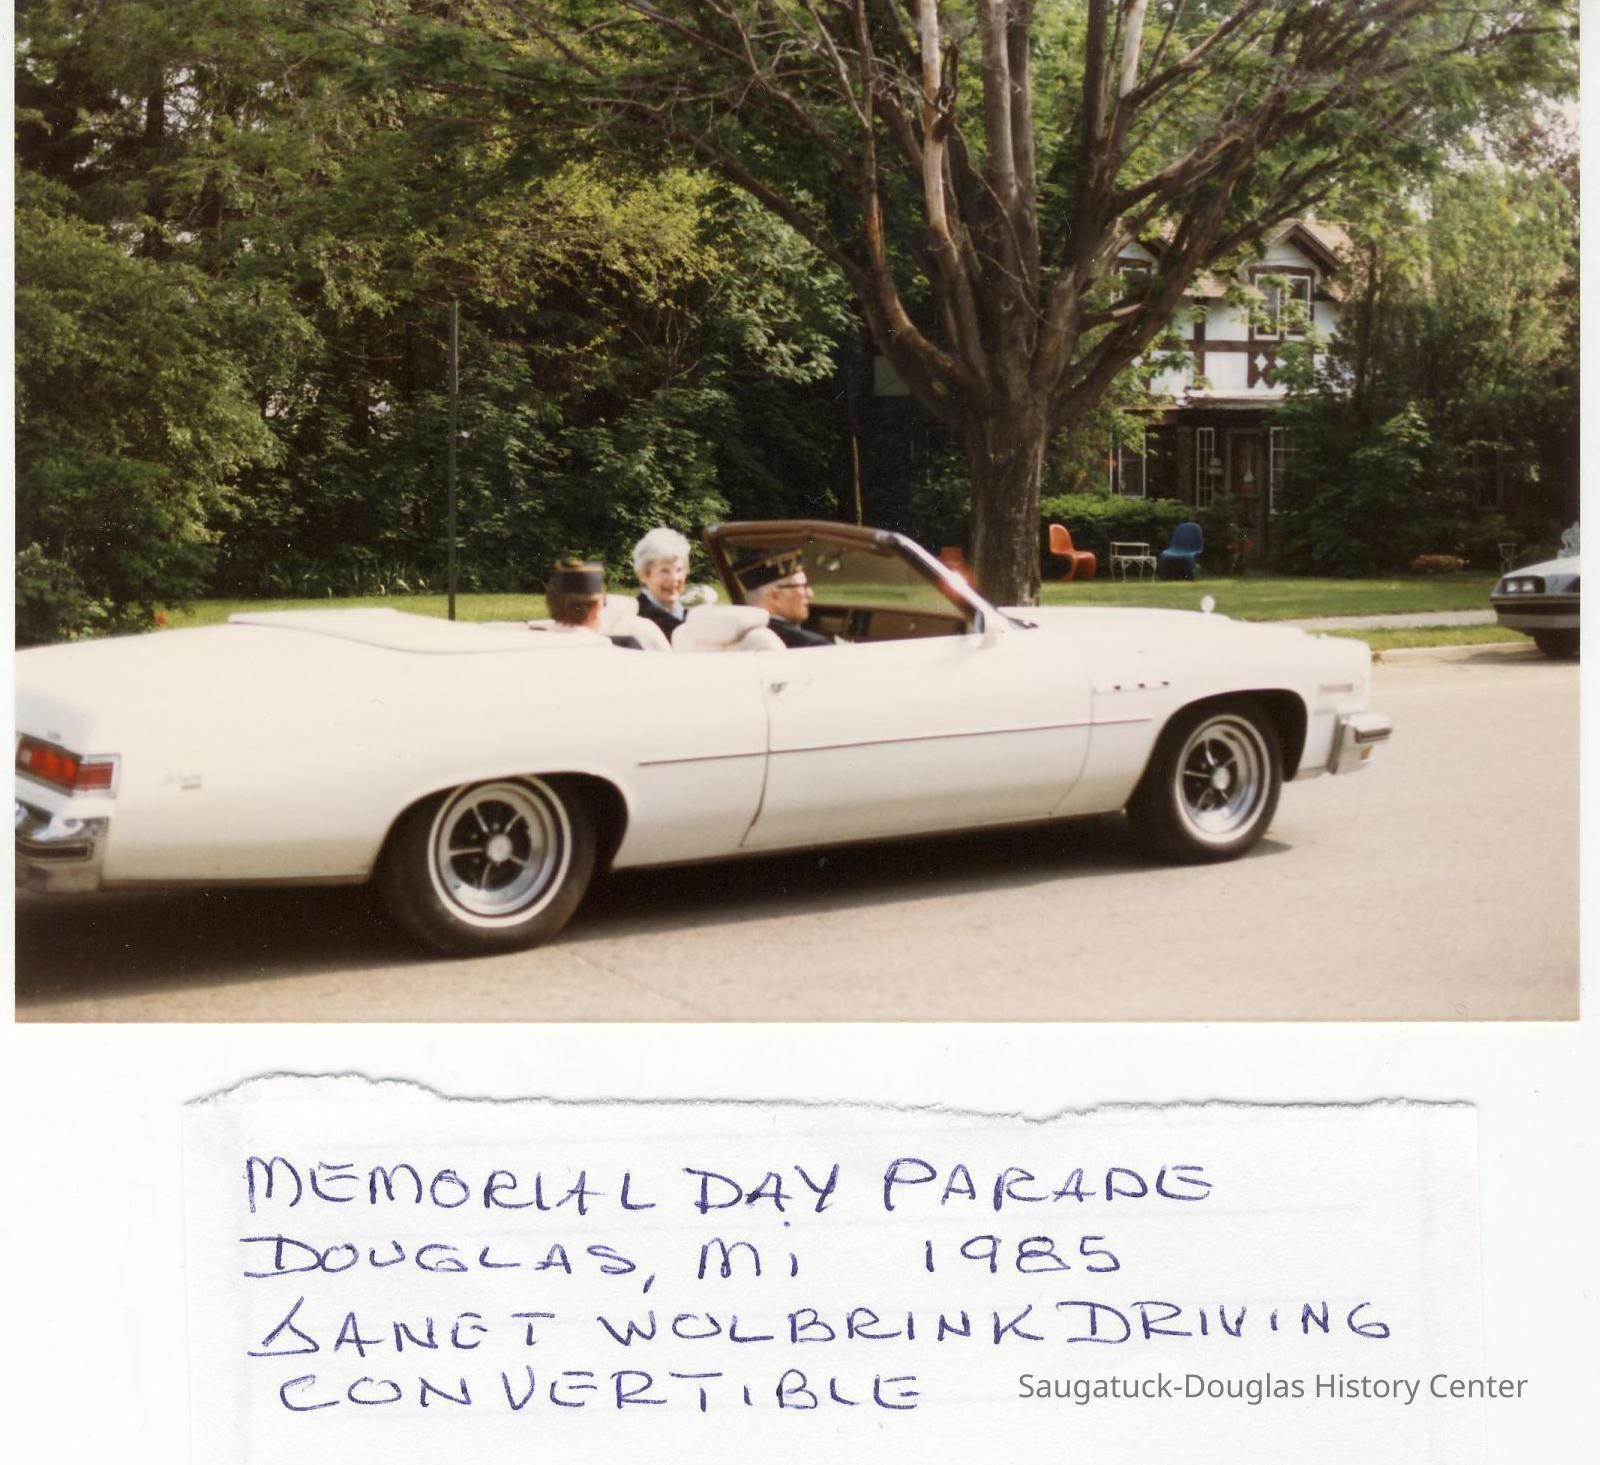 MEMORIAL DAY PARADE
DOUGLAS, Mi 1985
JANET WOLBRINK DRIVING
CONVERTIBLE
Saugatuck-Douglas History Center